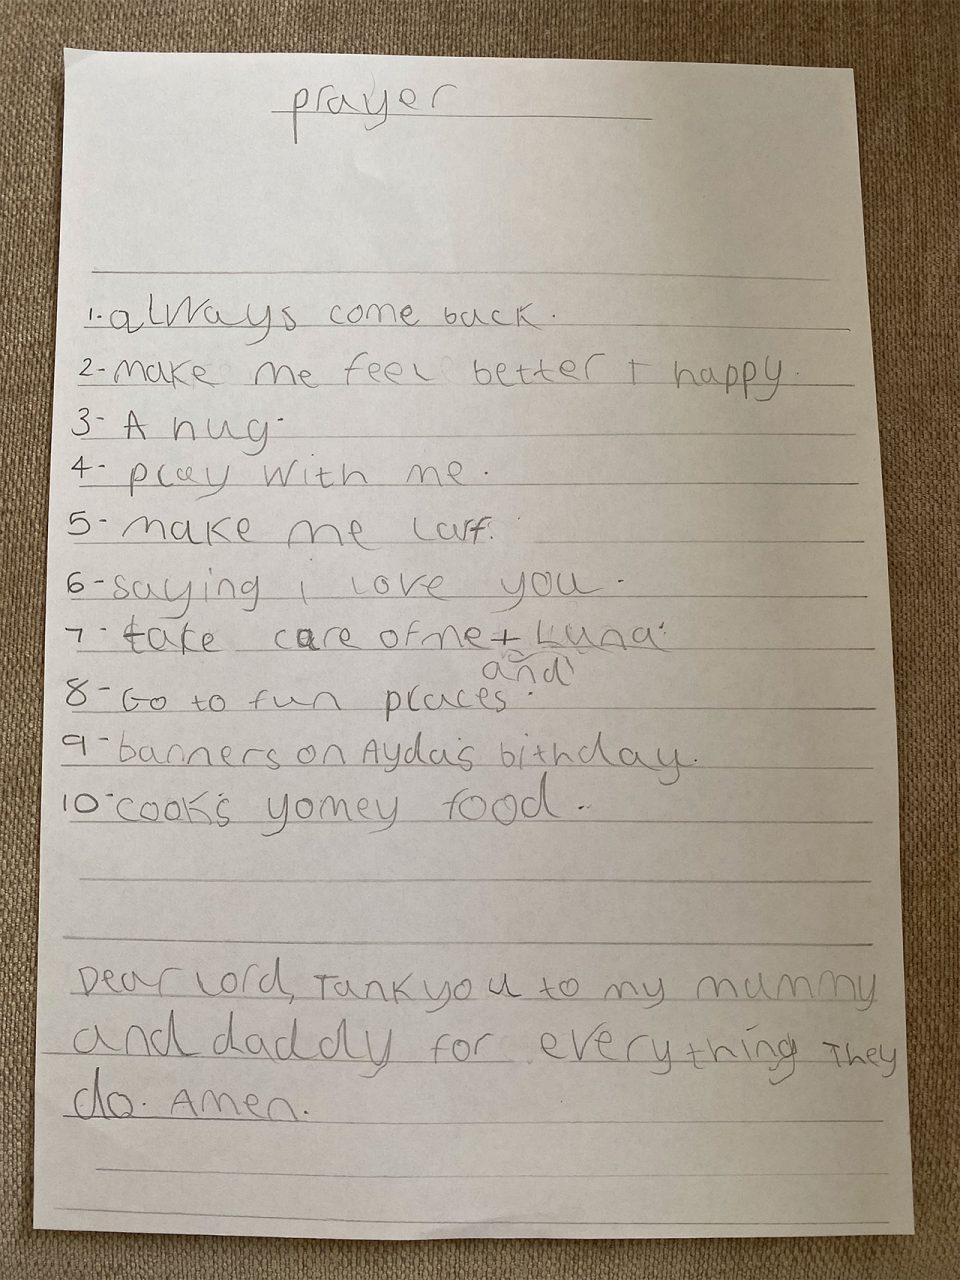 prayer
1. always come back.
2- make me feel better + happy.
3- A hug.
4- play with me.
5- make me laff.
6- saying i love you.
7- take care of me + Luna.
and
8- Go to fun places.
9- banners on Ayda's bithday.
10- cook's yomey food.
Dear lord, Tank you to my mummy
and daddy for everything They
do. Amen.